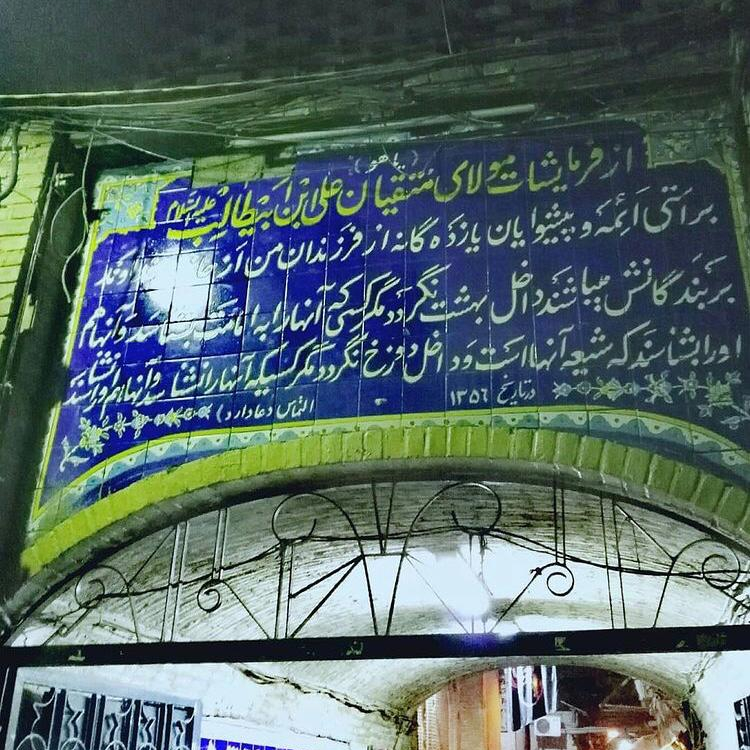 (یا هو)
از فرمایشات مولای متقیان علی ابن ابیطالب علیه السلام
براستی ائمه و پیشوایان یازده گانه از فرزندان من از
بر بندگانش میباشند داخل بهشت نگردد مگر کسیکه آنها را به امامت بشناسد و آنها هم
او را بشناسند که شیعه آنها است و داخل دوزخ نگردد مگر کسیکه آنها را نشناسد و آنها هم او را نشناسند
در تاریخ ۱۳۵۶
التماس دعا دارد)